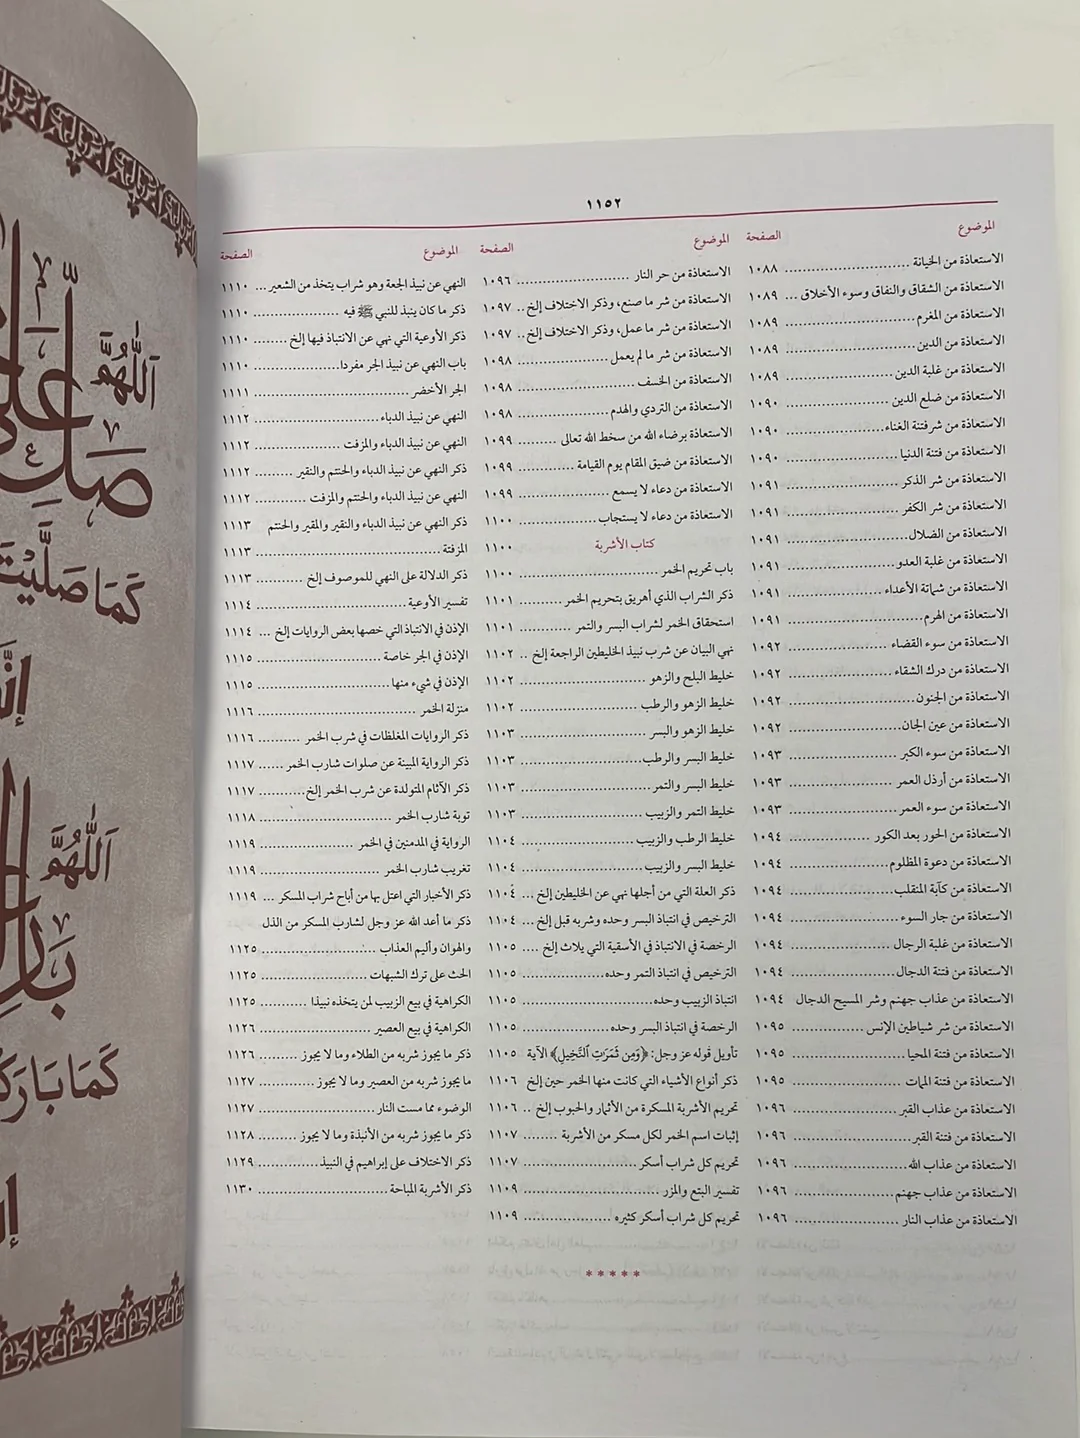 ١١٥٢
الموضوع الصفحة
الاستعاذة من الخيانة ١٠٨٨
الاستعاذة من الشقاق والنفاق وسوء الأخلاق ١٠٨٩
الاستعاذة من المغرم ١٠٨٩
الاستعاذة من الدين ١٠٨٩
الاستعاذة من غلبة الدين ١٠٨٩
الاستعاذة من ضلع الدين ١٠٩٠
الاستعاذة من شر فتنة الغناء ١٠٩٠
الاستعاذة من فتنة الدنيا ١٠٩٠
الاستعاذة من شر الذكر ١٠٩١
الاستعاذة من شر الكفر ١٠٩١
الاستعاذة من الضلال ١٠٩١
الاستعاذة من غلبة العدو ١٠٩١
الاستعاذة من شماتة الأعداء ١٠٩١
الاستعاذة من الهرم ١٠٩١
الاستعاذة من سوء القضاء ١٠٩٢
الاستعاذة من درك الشقاء ١٠٩٢
الاستعاذة من الجنون ١٠٩٢
الاستعاذة من عين الجان ١٠٩٢
الاستعاذة من سوء الكبر ١٠٩٣
الاستعاذة من أرذل العمر ١٠٩٣
الاستعاذة من سوء العمر ١٠٩٣
الاستعاذة من الحور بعد الكور ١٠٩٤
الاستعاذة من دعوة المظلوم ١٠٩٤
الاستعاذة من كآبة المنقلب ١٠٩٤
الاستعاذة من جار السوء ١٠٩٤
الاستعاذة من غلبة الرجال ١٠٩٤
الاستعاذة من فتنة الدجال ١٠٩٤
الاستعاذة من عذاب جهنم وشر المسيح الدجال ١٠٩٤
الاستعاذة من شر شياطين الإنس ١٠٩٥
الاستعاذة من فتنة المحيا ١٠٩٥
الاستعاذة من فتنة الممات ١٠٩٥
الاستعاذة من عذاب القبر ١٠٩٦
الاستعاذة من فتنة القبر ١٠٩٦
الاستعاذة من عذاب الله ١٠٩٦
الاستعاذة من عذاب جهنم ١٠٩٦
الاستعاذة من عذاب النار ١٠٩٦
الموضوع الصفحة
الاستعاذة من حر النار ١٠٩٦
الاستعاذة من شر ما صنع، وذكر الاختلاف إلخ ١٠٩٧
الاستعاذة من شر ما عمل، وذكر الاختلاف إلخ ١٠٩٧
الاستعاذة من شر ما لم يعمل ١٠٩٨
الاستعاذة من الخسف ١٠٩٨
الاستعاذة من التردي والهدم ١٠٩٨
الاستعاذة برضاء الله من سخط الله تعالى ١٠٩٩
الاستعاذة من ضيق المقام يوم القيامة ١٠٩٩
الاستعاذة من دعاء لا يسمع ١٠٩٩
الاستعاذة من دعاء لا يستجاب ١١٠٠
كتاب الأشربة ١١٠٠
باب تحريم الخمر ١١٠٠
ذكر الشراب الذي أهريق بتحريم الخمر ١١٠١
استحقاق الخمر لشراب البسر والتمر ١١٠١
نهي البيان عن شرب نبيذ الخليطين الراجعة إلخ ١١٠٢
خليط البلح والزهو ١١٠٢
خليط الزهو والرطب ١١٠٢
خليط الزهو والبسر ١١٠٣
خليط البسر والرطب ١١٠٣
خليط البسر والتمر ١١٠٣
خليط التمر والزبيب ١١٠٣
خليط الرطب والزبيب ١١٠٤
خليط البسر والزبيب ١١٠٤
ذكر العلة التي من أجلها نهي عن الخليطين إلخ ١١٠٤
الترخيص في انتباذ البسر وحده وشربه قبل إلخ ١١٠٤
الرخصة في الانتباذ في الأسقية التي يلاث إلخ ١١٠٥
الترخيص في انتباذ التمر وحده ١١٠٥
انتباذ الزبيب وحده ١١٠٥
الرخصة في انتباذ البسر وحده ١١٠٥
تأويل قوله عز وجل: ﴿وَمِن ثَمَرَٰتِ ٱلنَّخِيلِ﴾ الآية ١١٠٥
ذكر أنواع الأشياء التي كانت منها الخمر حين إلخ ١١٠٦
تحريم الأشربة المسكرة من الأثمار والحبوب إلخ ١١٠٦
إثبات اسم الخمر لكل مسكر من الأشربة ١١٠٧
تحريم كل شراب أسكر ١١٠٧
تفسير البتع والمزر ١١٠٩
تحريم كل شراب أسكر كثيره ١١٠٩
الموضوع الصفحة
النهي عن نبيذ الجعة وهو شراب يتخذ من الشعير ١١١٠
ذكر ما كان ينبذ للنبي ﷺ فيه ١١١٠
ذكر الأوعية التي نهي عن الانتباذ فيها إلخ ١١١٠
باب النهي عن نبيذ الجر مفردا ١١١٠
الجر الأخضر ١١١١
النهي عن نبيذ الدباء ١١١٢
النهي عن نبيذ الدباء والمزفت ١١١٢
ذكر النهي عن نبيذ الدباء والحنتم والنقير ١١١٢
النهي عن نبيذ الدباء والحنتم والمزفت ١١١٢
ذكر النهي عن نبيذ الدباء والنقير والمقير والحنتم ١١١٣
المزفتة ١١١٣
ذكر الدلالة على النهي للموصوف إلخ ١١١٣
تفسير الأوعية ١١١٤
الإذن في الانتباذ التي خصها بعض الروايات إلخ ١١١٤
الإذن في الجر خاصة ١١١٥
الإذن في شيء منها ١١١٥
منزلة الخمر ١١١٦
ذكر الروايات المغلظات في شرب الخمر ١١١٦
ذكر الرواية المبينة عن صلوات شارب الخمر ١١١٧
ذكر الآثام المتولدة عن شرب الخمر إلخ ١١١٧
توبة شارب الخمر ١١١٨
الرواية في المدمنين في الخمر ١١١٩
تغريب شارب الخمر ١١١٩
ذكر الأخبار التي اعتل بها من أباح شراب المسكر ١١١٩
ذكر ما أعد الله عز وجل لشارب المسكر من الذل
والهوان وأليم العذاب ١١٢٥
الحث على ترك الشبهات ١١٢٥
الكراهية في بيع الزبيب لمن يتخذه نبيذا ١١٢٥
الكراهية في بيع العصير ١١٢٦
ذكر ما يجوز شربه من الطلاء وما لا يجوز ١١٢٦
ما يجوز شربه من العصير وما لا يجوز ١١٢٧
الوضوء مما مست النار ١١٢٧
ذكر ما يجوز شربه من الأنبذة وما لا يجوز ١١٢٨
ذكر الاختلاف على إبراهيم في النبيذ ١١٢٩
ذكر الأشربة المباحة ١١٣٠
*****
اَللّٰهُمَّ
صَلِّ عَلٰى
كَمَا صَلَّيْتَ
اَللّٰهُمَّ